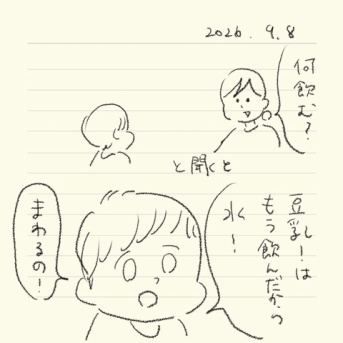 2026.9.8
何飲む？
と聞くと
豆乳！は
もう飲んだから
水！
まわるの！